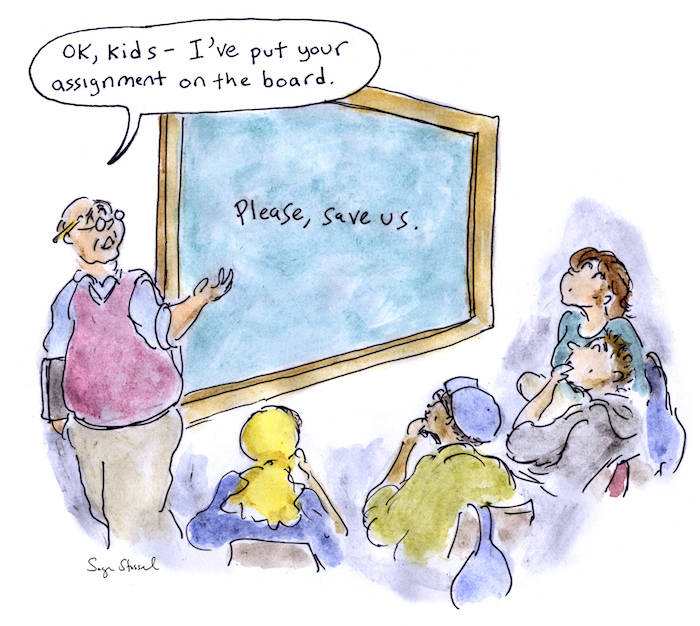 OK, kids - I've put your
assignment on the board.
Please, save us.
Sage Stossel